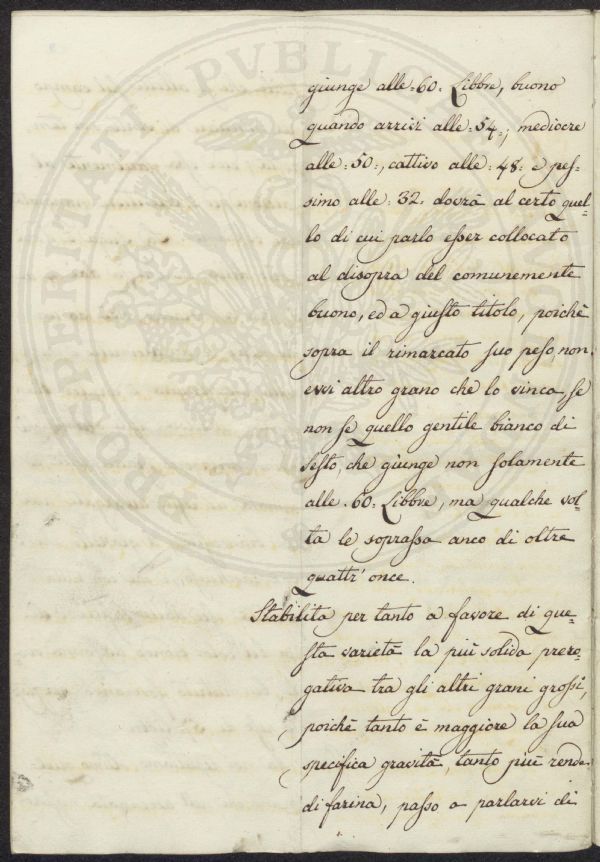 giunge alle =60= Libbre, buono
quando arrivi alle =54=; mediocre
alle =50=, cattivo alle =48= e pes=
simo alle =32= dovrà al certo quel=
lo di cui parlo esser collocato
al disopra del comunemente
buono, ed a giusto titolo, poichè
sopra il rimarcato suo peso non
evvi altro grano che lo vinca se
non se quello gentile bianco di
Sesto, che giunge non solamente
alle =60= Libbre, ma qualche vol=
ta le soprassa anco di oltre
quattr'once.
Stabilita per tanto a favore di que=
sta varietà la più solida prero=
gativa tra gli altri grani grossi,
poichè tanto è maggiore la sua
specifica gravità, tanto più rende
di farina, passo a parlarvi di
PROSPERITATI PVBLICAE